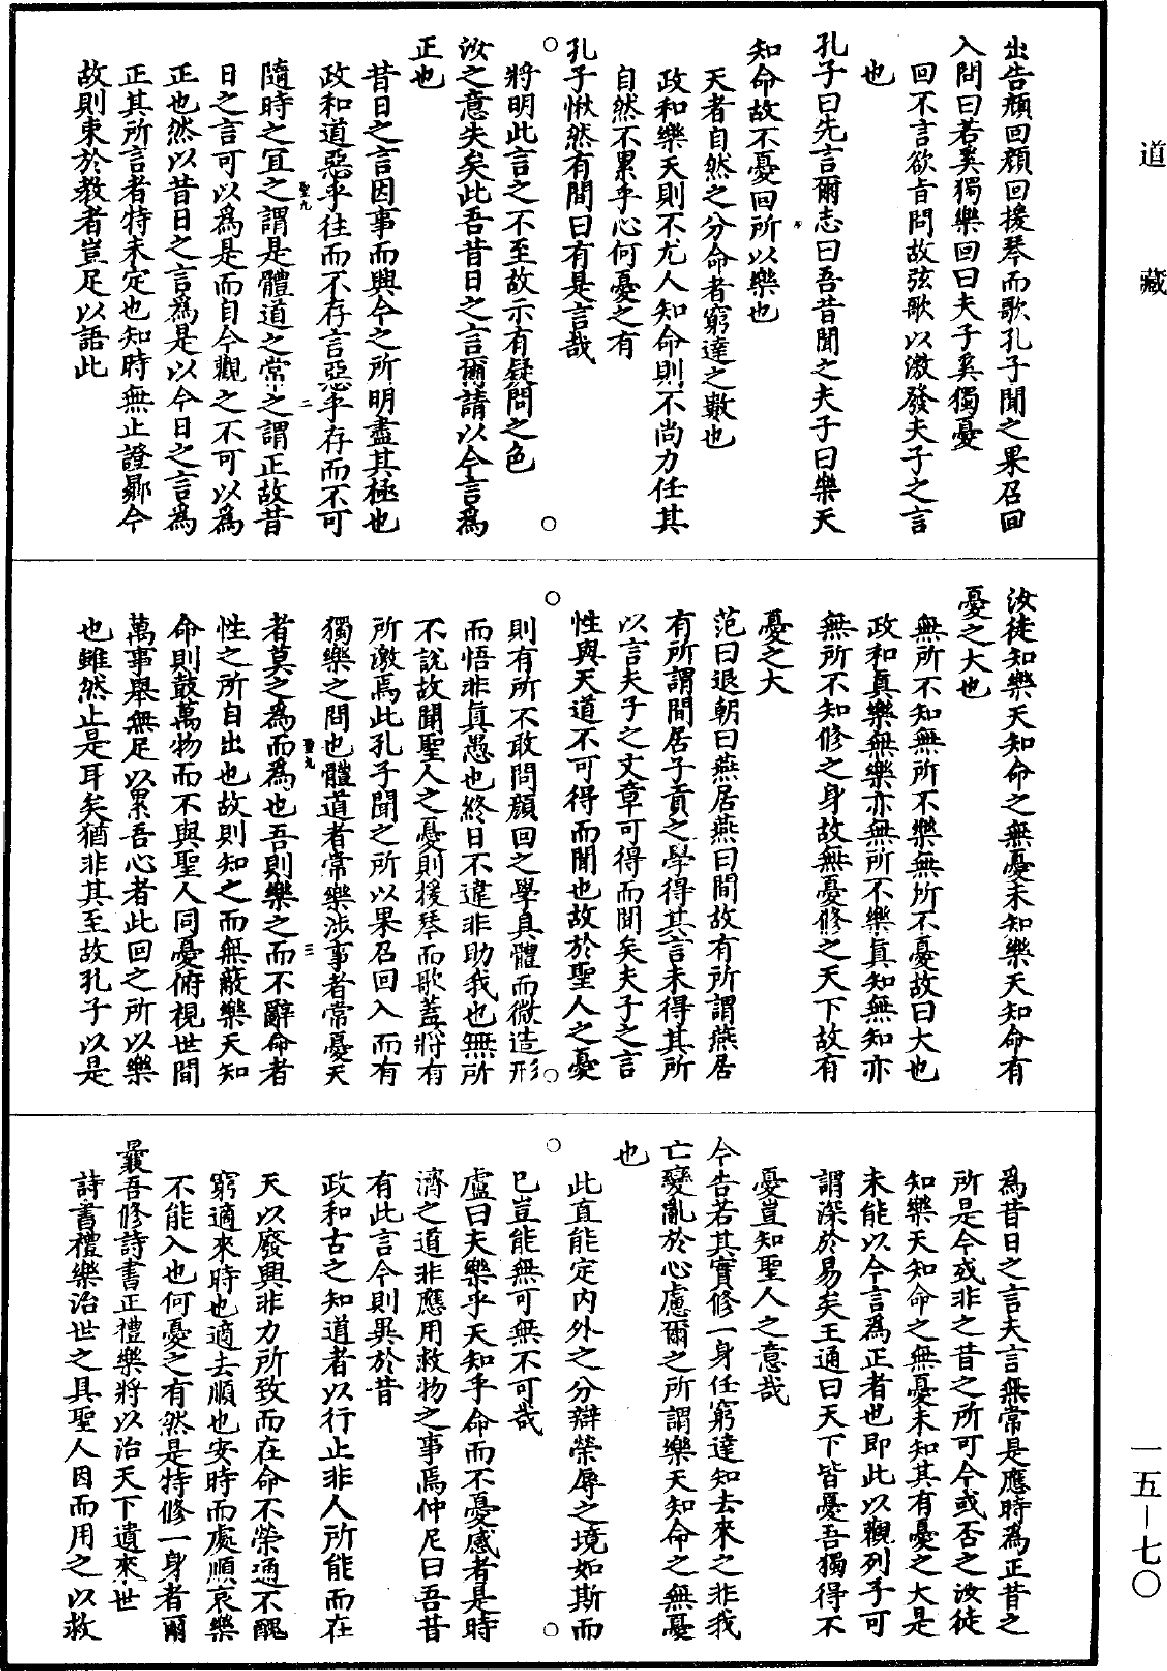 道藏
出告顏回顏回援琴而歌孔子聞之果召回
入問曰若奚獨樂回曰夫子奚獨憂
回不言欲㫖問故弦歌以激發夫子之言
也
孔子曰先言爾志曰吾昔聞之夫子曰樂天
知命故不憂回所以樂也
天者自然之分命者窮達之數也
政和樂天則不尤人知命則不尚力任其
自然不累乎心何憂之有
孔子愀然有間曰有是言哉
將明此言之不至故示有疑問之色
汝之意失矣此吾昔日之言爾請以今言爲
正也
昔日之言因事而興今之所明盡其極也
政和道惡乎往而不存言惡乎存而不可
隨時之宜之謂是體道之常之謂正故昔
日之言可以爲是而自今觀之不可以爲
正也然以昔日之言爲是以今日之言爲
正其所言者特未定也知時無止證曏今
故則束於教者豈足以語此
聖九
二
汝徒知樂天知命之無憂未知樂天知命有
憂之大也
無所不知無所不樂無所不憂故曰大也
政和真樂無樂亦無所不樂真知無知亦
無所不知修之身故無憂修之天下故有
憂之大
范曰退朝曰燕居燕曰間故有所謂燕居
有所謂間居子貢之學得其言未得其所
以言夫子之文章可得而聞矣夫子之言
性與天道不可得而聞也故於聖人之憂
則有所不敢問顏回之學具體而微造形
而悟非真愚也終日不違非助我也無所
不說故聞聖人之憂則援琴而歌蓋將有
所激焉此孔子聞之所以果召回入而有
獨樂之問也體道者常樂涉事者常憂天
者莫之爲而爲也吾則樂之而不辭命者
性之所自出也故則知之而無蔽樂天知
命則鼓萬物而不與聖人同憂俯視世間
萬事舉無足以累吾心者此回之所以樂
也雖然止是耳矣猶非其至故孔子以是
聖九
三
爲昔日之言夫言無常是應時爲正昔之
所是今或非之昔之所可今或否之汝徒
知樂天知命之無憂未知其有憂之大是
未能以今言爲正者也即此以觀列子可
謂深於易矣王通曰天下皆憂吾獨得不
憂豈知聖人之意哉
今告若其實修一身任窮達知去來之非我
亡變亂於心慮爾之所謂樂天知命之無憂
也
此直能定內外之分辯榮辱之境如斯而
已豈能無可無不可哉
盧曰夫樂乎天知乎命而不憂慼者是時
濟之道非應用救物之事焉仲尼曰吾昔
有此言今則異於昔
政和古之知道者以行止非人所能而在
天以廢興非力所致而在命不榮通不醜
窮適來時也適去順也安時而處順哀樂
不能入也何憂之有然是特修一身者爾
曩吾修詩書正禮樂將以治天下遺來世
詩書禮樂治世之具聖人因而用之以救
一五—七〇